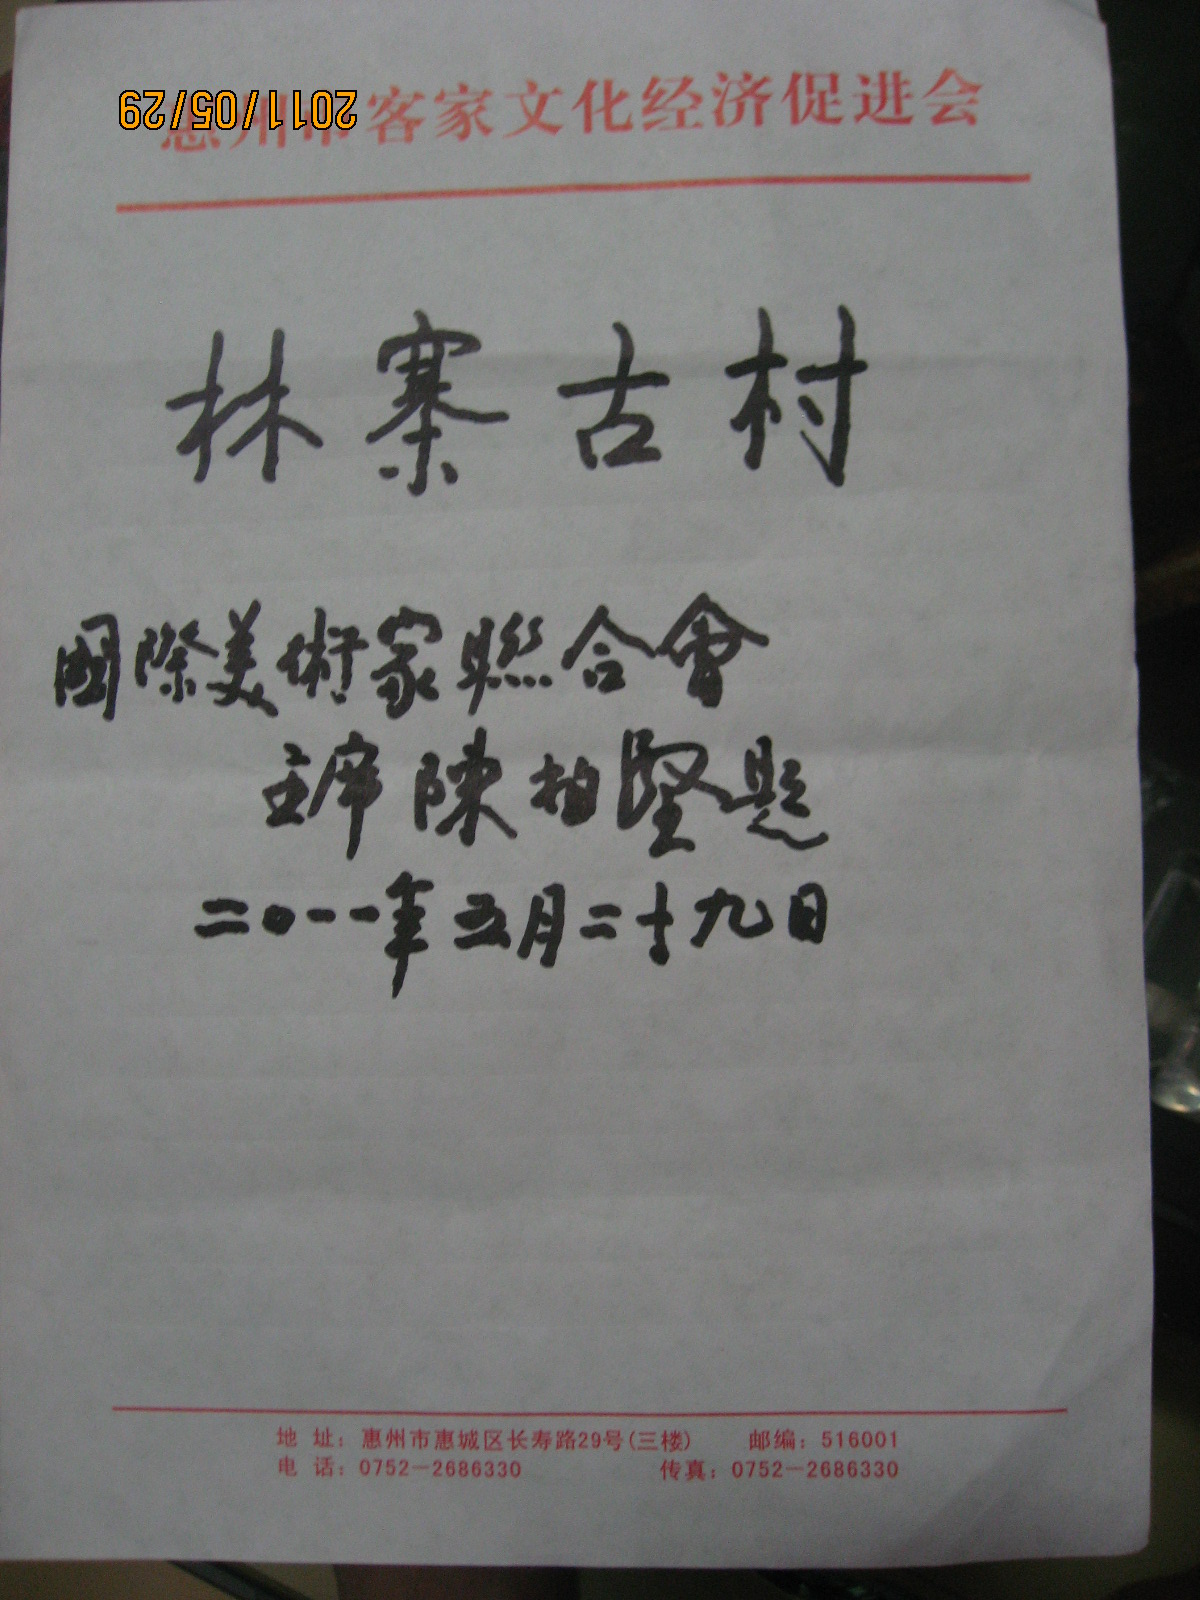 惠州市客家文化经济促进会
2011/05/29
林寨古村
國際美術家聯合會
主席 陳柏堅題
二〇一一年五月二十九日
地 址：惠州市惠城区长寿路29号(三楼) 邮编：516001
电 话：0752－2686330 传真：0752－2686330